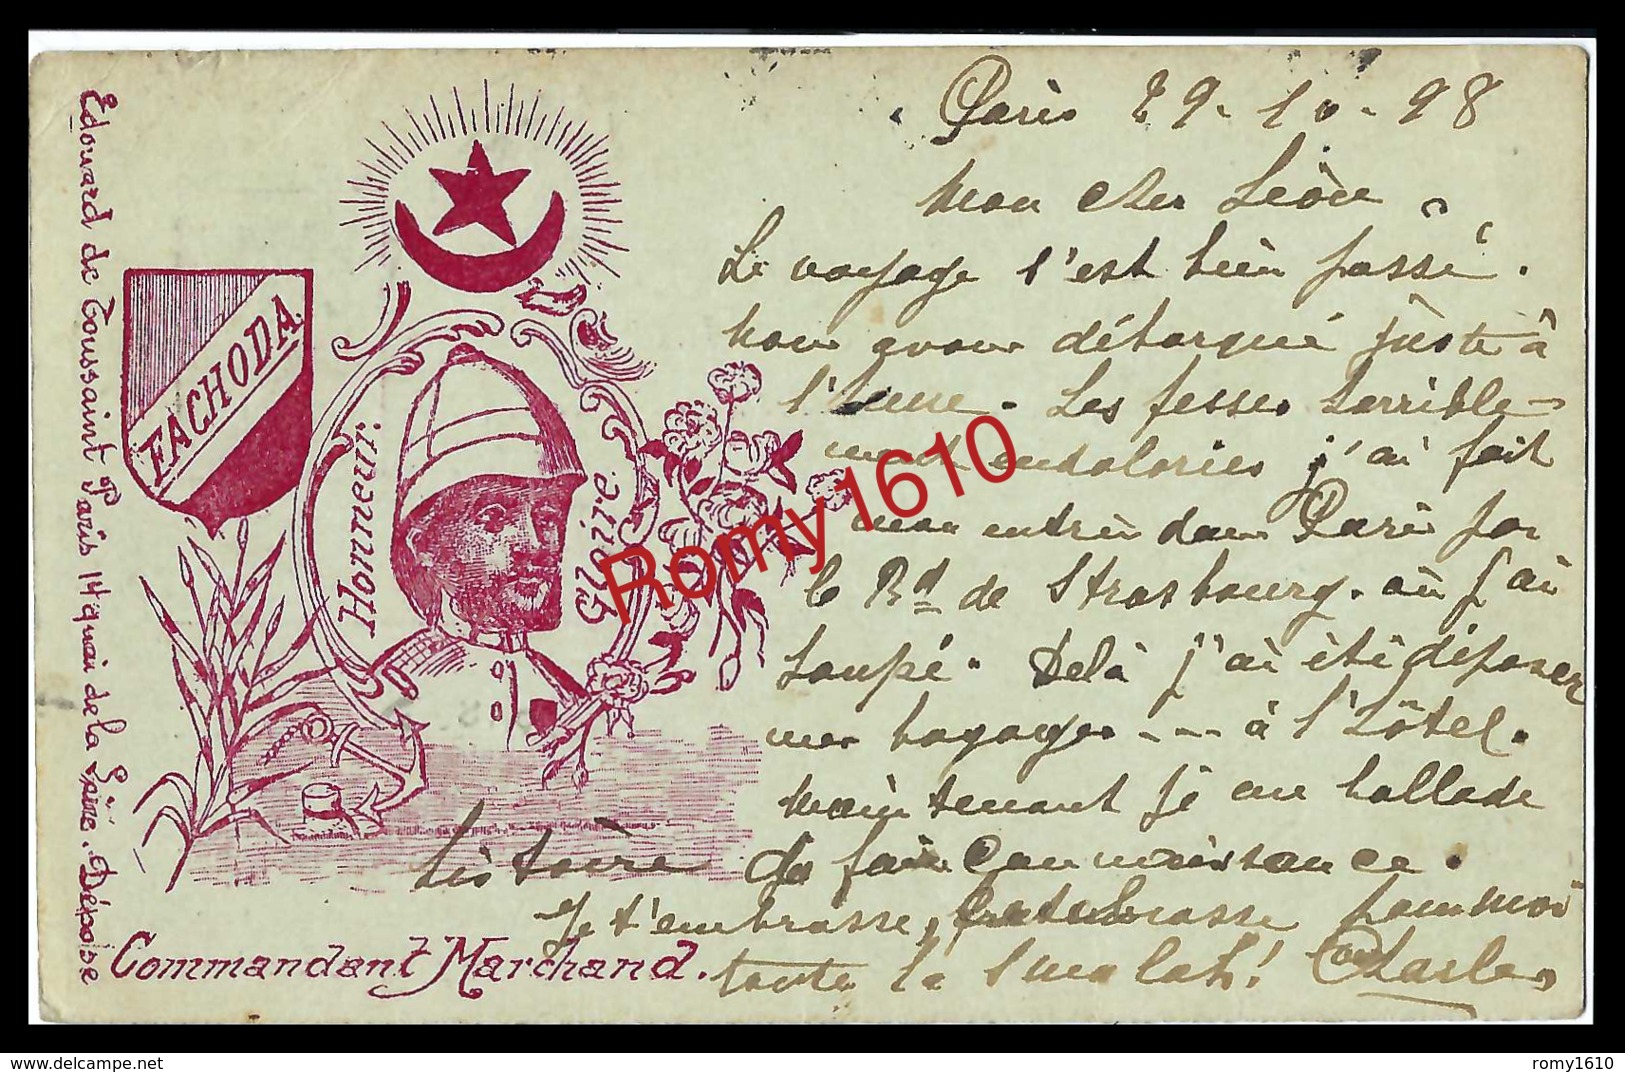 Edouard de Toussaint Paris 14 quai de la Deposé
FACHODA
Honneur.
Patrie
Commandant Marchand.
Paris 29-10-98
Mon cher Léon
Le voyage s'est bien passé.
Nous avons débarqué juste à
l'heure. Les fesses terrible-
ment endolories j'ai fait
mon entrée dans Paris par
le Bd de Strasbourg. où j'ai
soupé. Delà j'ai été déposer
mes bagages --- à l'hôtel.
Maintenant je me ballade
histoire de faire connaissance.
Je t'embrasse, embrasse pour moi
toute la smalah! Charles
Romy1610
www.delcampe.net
romy1610